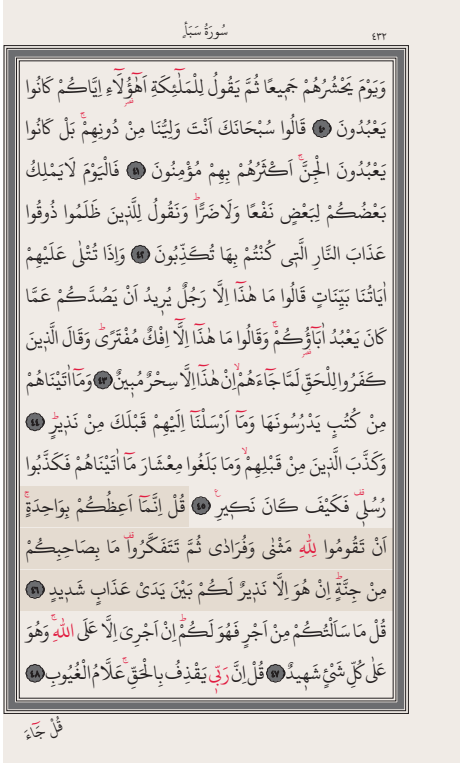 ٤٣٢
سُورَةُ سَبَأٍ
وَيَوْمَ يَحْشُرُهُمْ جَمٖيعًا ثُمَّ يَقُولُ لِلْمَلٰٓئِكَةِ اَهٰٓؤُ۬لَٓاءِ اِيَّاكُمْ كَانُوا
يَعْبُدُونَ ﴿٤٠﴾ قَالُوا سُبْحَانَكَ اَنْتَ وَلِيُّنَا مِنْ دُونِهِمْۚ بَلْ كَانُوا
يَعْبُدُونَ الْجِنَّۚ اَكْثَرُهُمْ بِهِمْ مُؤْمِنُونَ ﴿٤١﴾ فَالْيَوْمَ لَايَمْلِكُ
بَعْضُكُمْ لِبَعْضٍ نَفْعًا وَلَاضَرًّاۜ وَنَقُولُ لِلَّذٖينَ ظَلَمُوا ذُوقُوا
عَذَابَ النَّارِ الَّتٖى كُنْتُمْ بِهَا تُكَذِّبُونَ ﴿٤٢﴾ وَاِذَا تُتْلٰى عَلَيْهِمْ
اٰيَاتُنَا بَيِّنَاتٍ قَالُوا مَا هٰذَٓا اِلَّا رَجُلٌ يُرٖيدُ اَنْ يَصُدَّكُمْ عَمَّا
كَانَ يَعْبُدُ اٰبَٓاؤُ۬كُمْۚ وَقَالُوا مَا هٰذَٓا اِلَّٓا اِفْكٌ مُفْتَرًىۜ وَقَالَ الَّذٖينَ
كَفَرُوا لِلْحَقِّ لَمَّا جَٓاءَهُمْۙ اِنْ هٰذَٓا اِلَّا سِحْرٌ مُبٖينٌ ﴿٤٣﴾ وَمَٓا اٰتَيْنَاهُمْ
مِنْ كُتُبٍ يَدْرُسُونَهَا وَمَٓا اَرْسَلْنَٓا اِلَيْهِمْ قَبْلَكَ مِنْ نَذٖيرٍۜ ﴿٤٤﴾
وَكَذَّبَ الَّذٖينَ مِنْ قَبْلِهِمْۙ وَمَا بَلَغُوا مِعْشَارَ مَٓا اٰتَيْنَاهُمْ فَكَذَّبُوا
رُسُلٖىࣞ فَكَيْفَ كَانَ نَكٖيرِࣖ ﴿٤٥﴾ قُلْ اِنَّمَٓا اَعِظُكُمْ بِوَاحِدَةٍۚ
اَنْ تَقُومُوا لِلّٰهِ مَثْنٰى وَفُرَادٰى ثُمَّ تَتَفَكَّرُواࣞ مَا بِصَاحِبِكُمْ
مِنْ جِنَّةٍۜ اِنْ هُوَ اِلَّا نَذٖيرٌ لَكُمْ بَيْنَ يَدَىْ عَذَابٍ شَدٖيدٍ ﴿٤٦﴾
قُلْ مَا سَاَلْتُكُمْ مِنْ اَجْرٍ فَهُوَ لَكُمْۜ اِنْ اَجْرِىَ اِلَّا عَلَى اللّٰهِۚ وَهُوَ
عَلٰى كُلِّ شَىْءٍ شَهٖيدٌ ﴿٤٧﴾ قُلْ اِنَّ رَبّٖى يَقْذِفُ بِالْحَقِّۚ عَلَّامُ الْغُيُوبِ ﴿٤٨﴾
قُلْ جَٓاءَ